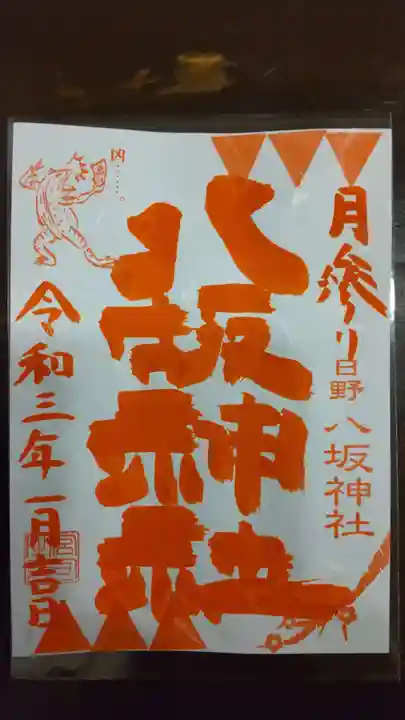 月参り
日野 八坂神社
八坂神社
凶……。
令和三年一月吉日